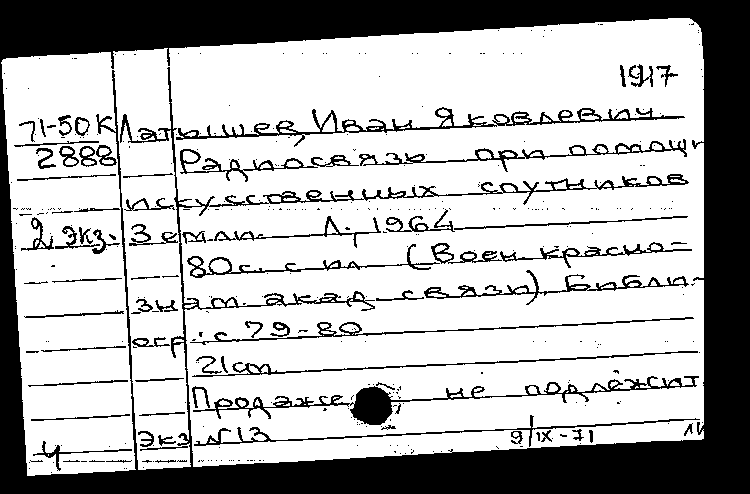 1917
71-50К Латышев, Иван Яковлевич.
2888 Радиосвязь при помощи
искусственных спутников
2 экз. Земли. Л., 1964
80с. с ил (Воен. красно=
знам. акад. связи). Библи-
огр.: с 79-80
21 cm
Продаже не подлежит
Экз. №13
4 9/IX-71